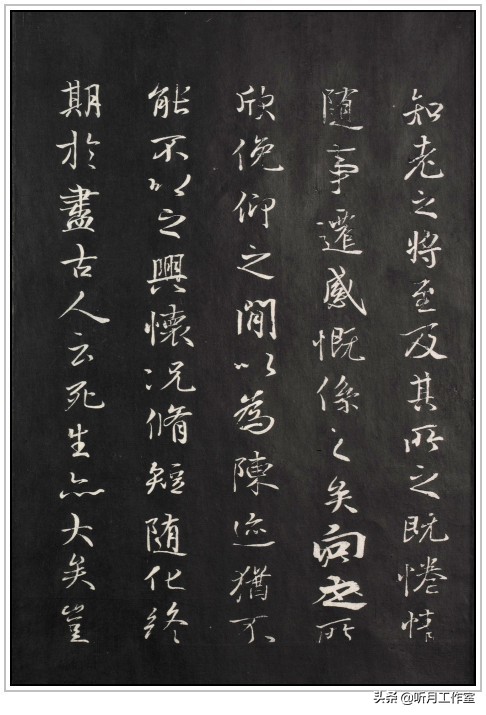 知老之將至及其所之既惓情
隨事遷感慨係之矣向之所
欣俛仰之閒以為陳迹猶不
能不以之興懷況脩短随化終
期於盡古人云死生亦大矣豈
头条 @听月工作室